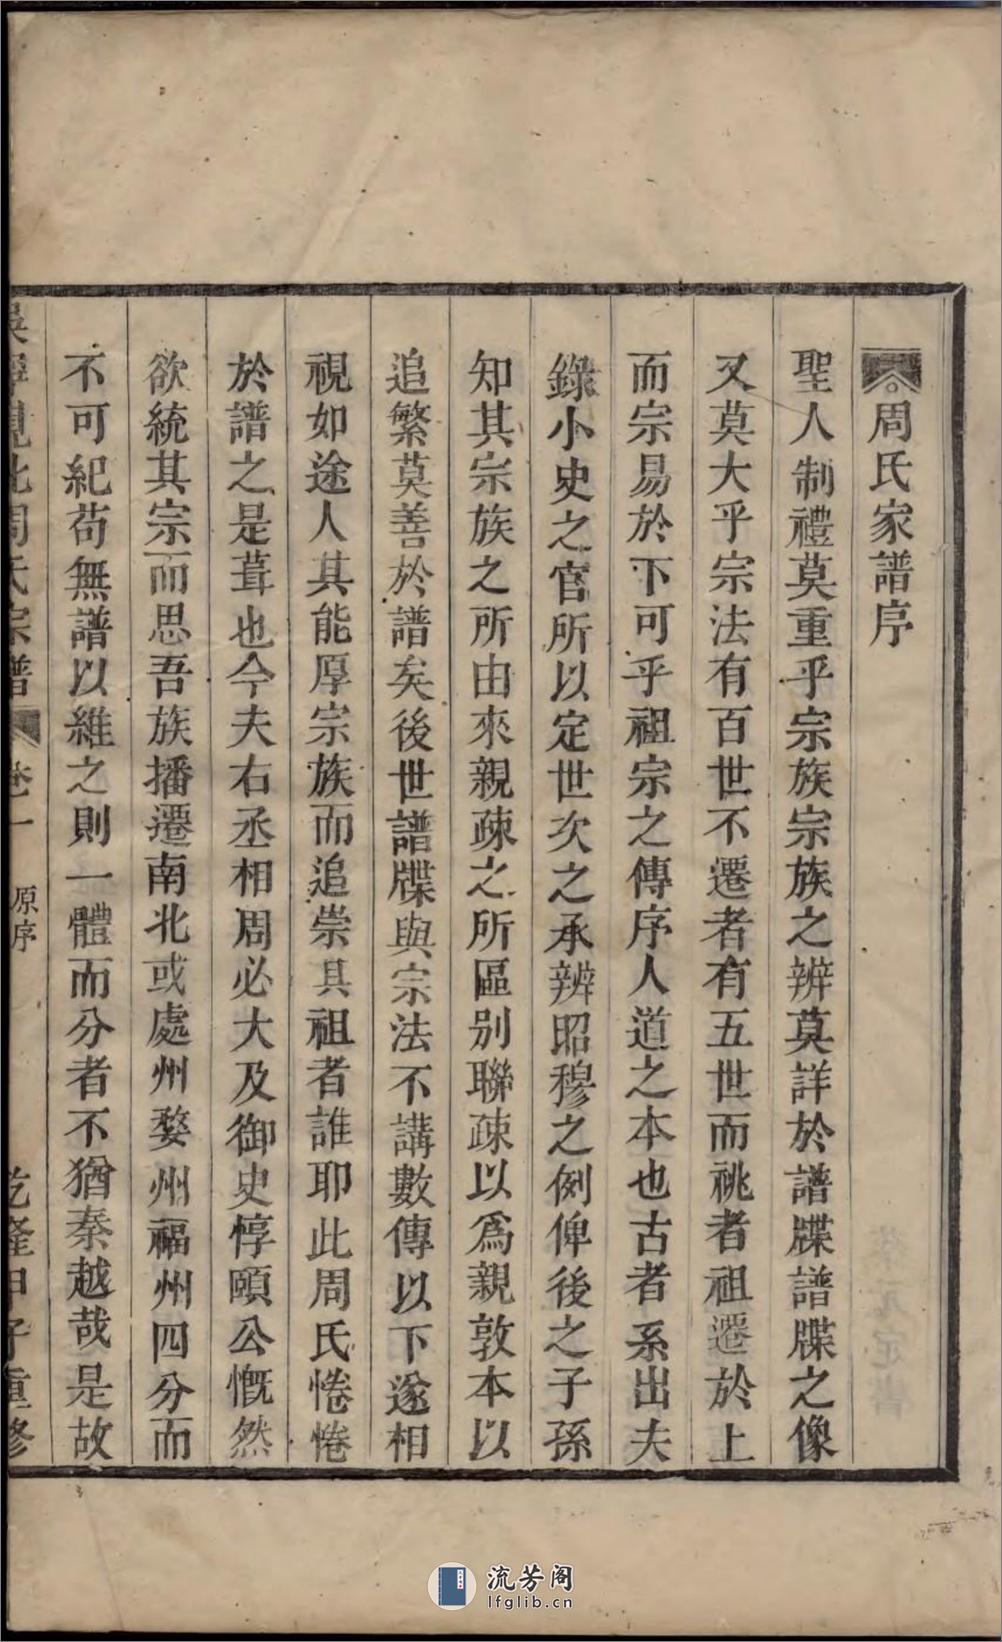 周氏家譜序
聖人制禮莫重乎宗族宗族之辨莫詳於譜牒譜牒之像
又莫大乎宗法有百世不遷者有五世而祧者祖遷於上
而宗易於下可乎祖宗之傳序人道之本也古者系出夫
錄小史之官所以定世次之承辨昭穆之例俾後之子孫
知其宗族之所由來親疎之所區别聯疎以爲親敦本以
追繁莫善於譜矣後世譜牒與宗法不講數傳以下遂相
視如途人其能厚宗族而追崇具祖者誰耶此周氏惓惓
於譜之是葺也今夫右丞相周必大及御史惇頤公慨然
欲統其宗而思吾族播遷南北或處州婺州福州四分而
不可紀苟無譜以維之則一體而分者不猶秦越哉是故
吳寧覓北周氏宗譜 卷一 原序 乾隆甲子重修
流芳阁
lfglib.cn